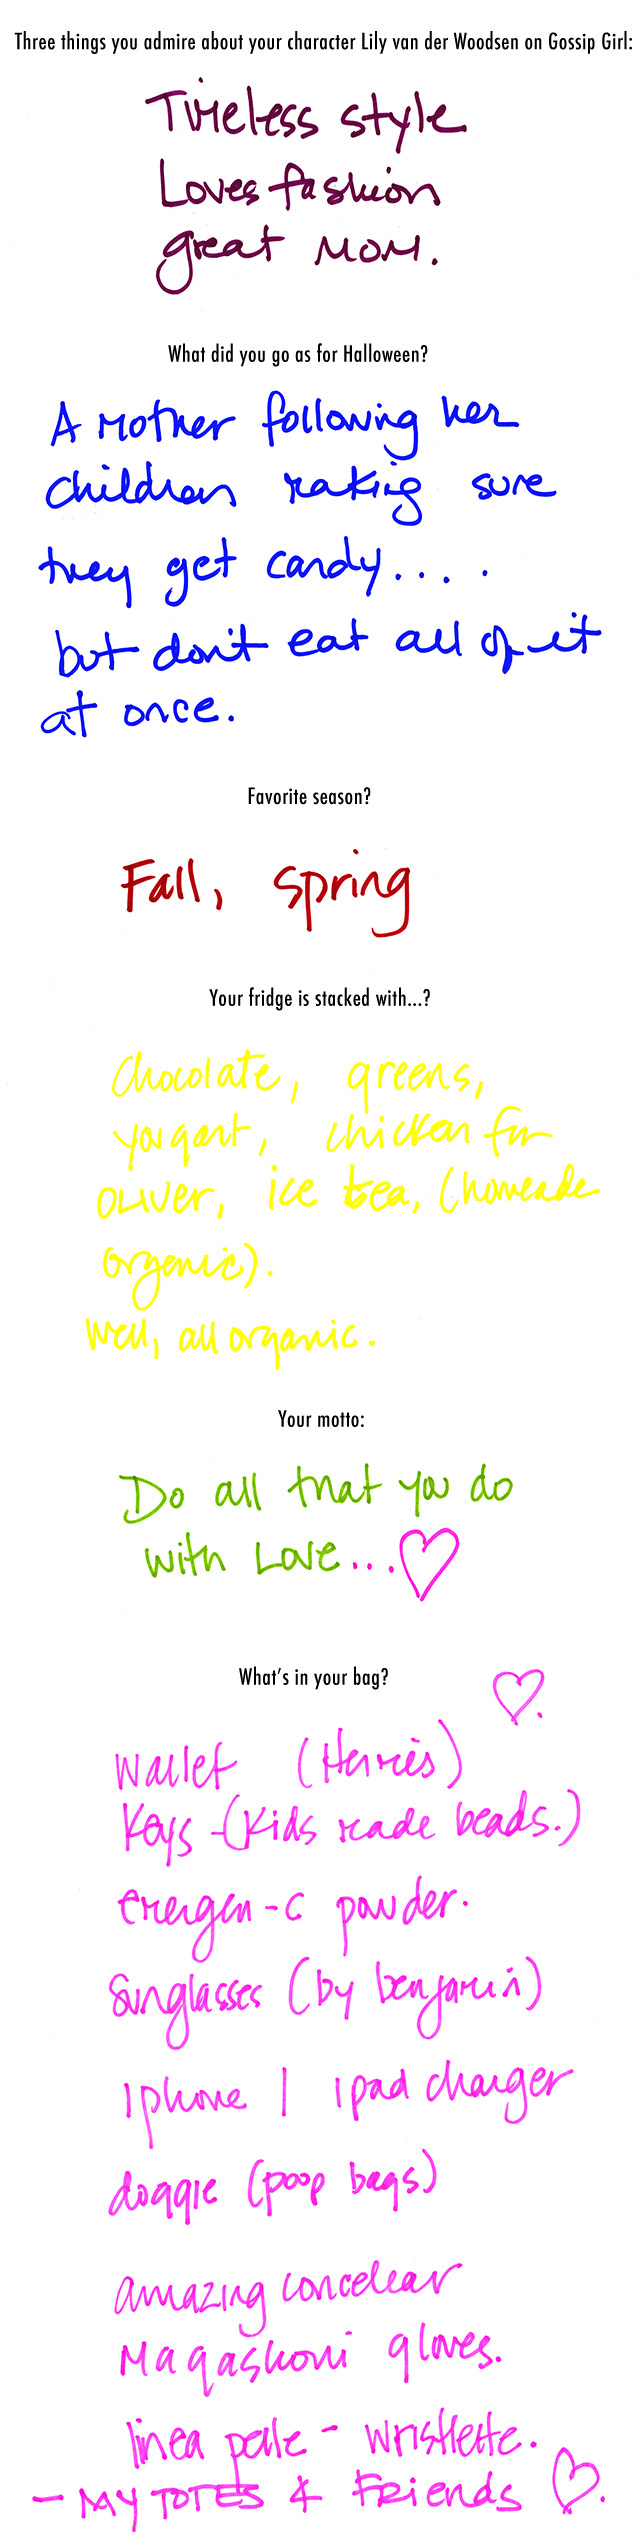 Three things you admire about your character Lily van der Woodsen on Gossip Girl:
Timeless style
Loves fashion
great MOM.
What did you go as for Halloween?
A mother following her
children making sure
they get candy....
but don't eat all of it
at once.
Favorite season?
Fall, spring
Your fridge is stacked with...?
Chocolate, greens,
yougart, chicken for
OLIVER, ice tea, (homeade
organic).
Well, all organic.
Your motto:
Do all that you do
with Love...
What's in your bag?
Wallet (Hermés)
Keys - (Kids made beads.)
emergen-c powder.
Sunglasses (by benjamin)
Iphone | ipad charger
doggie (poop bags)
amazing concelear
Magaskoni gloves.
linea pelle - wristlette.
- MY TOTES & Friends